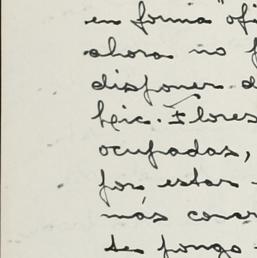 en forma "ofi
ahora no p
disponer d
Flores
ocupadas,
por estar
más conve
te pongo